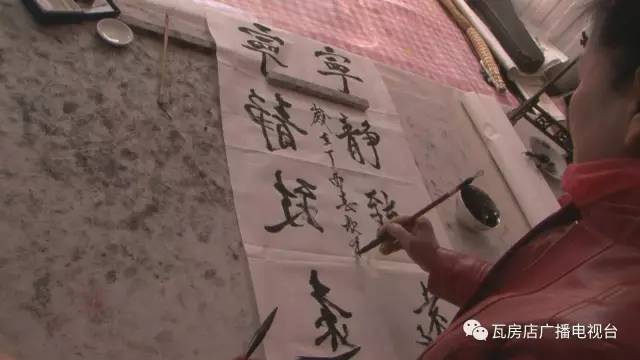 寧靜致遠
歲在丁酉春
寧靜致遠
瓦房店广播电视台